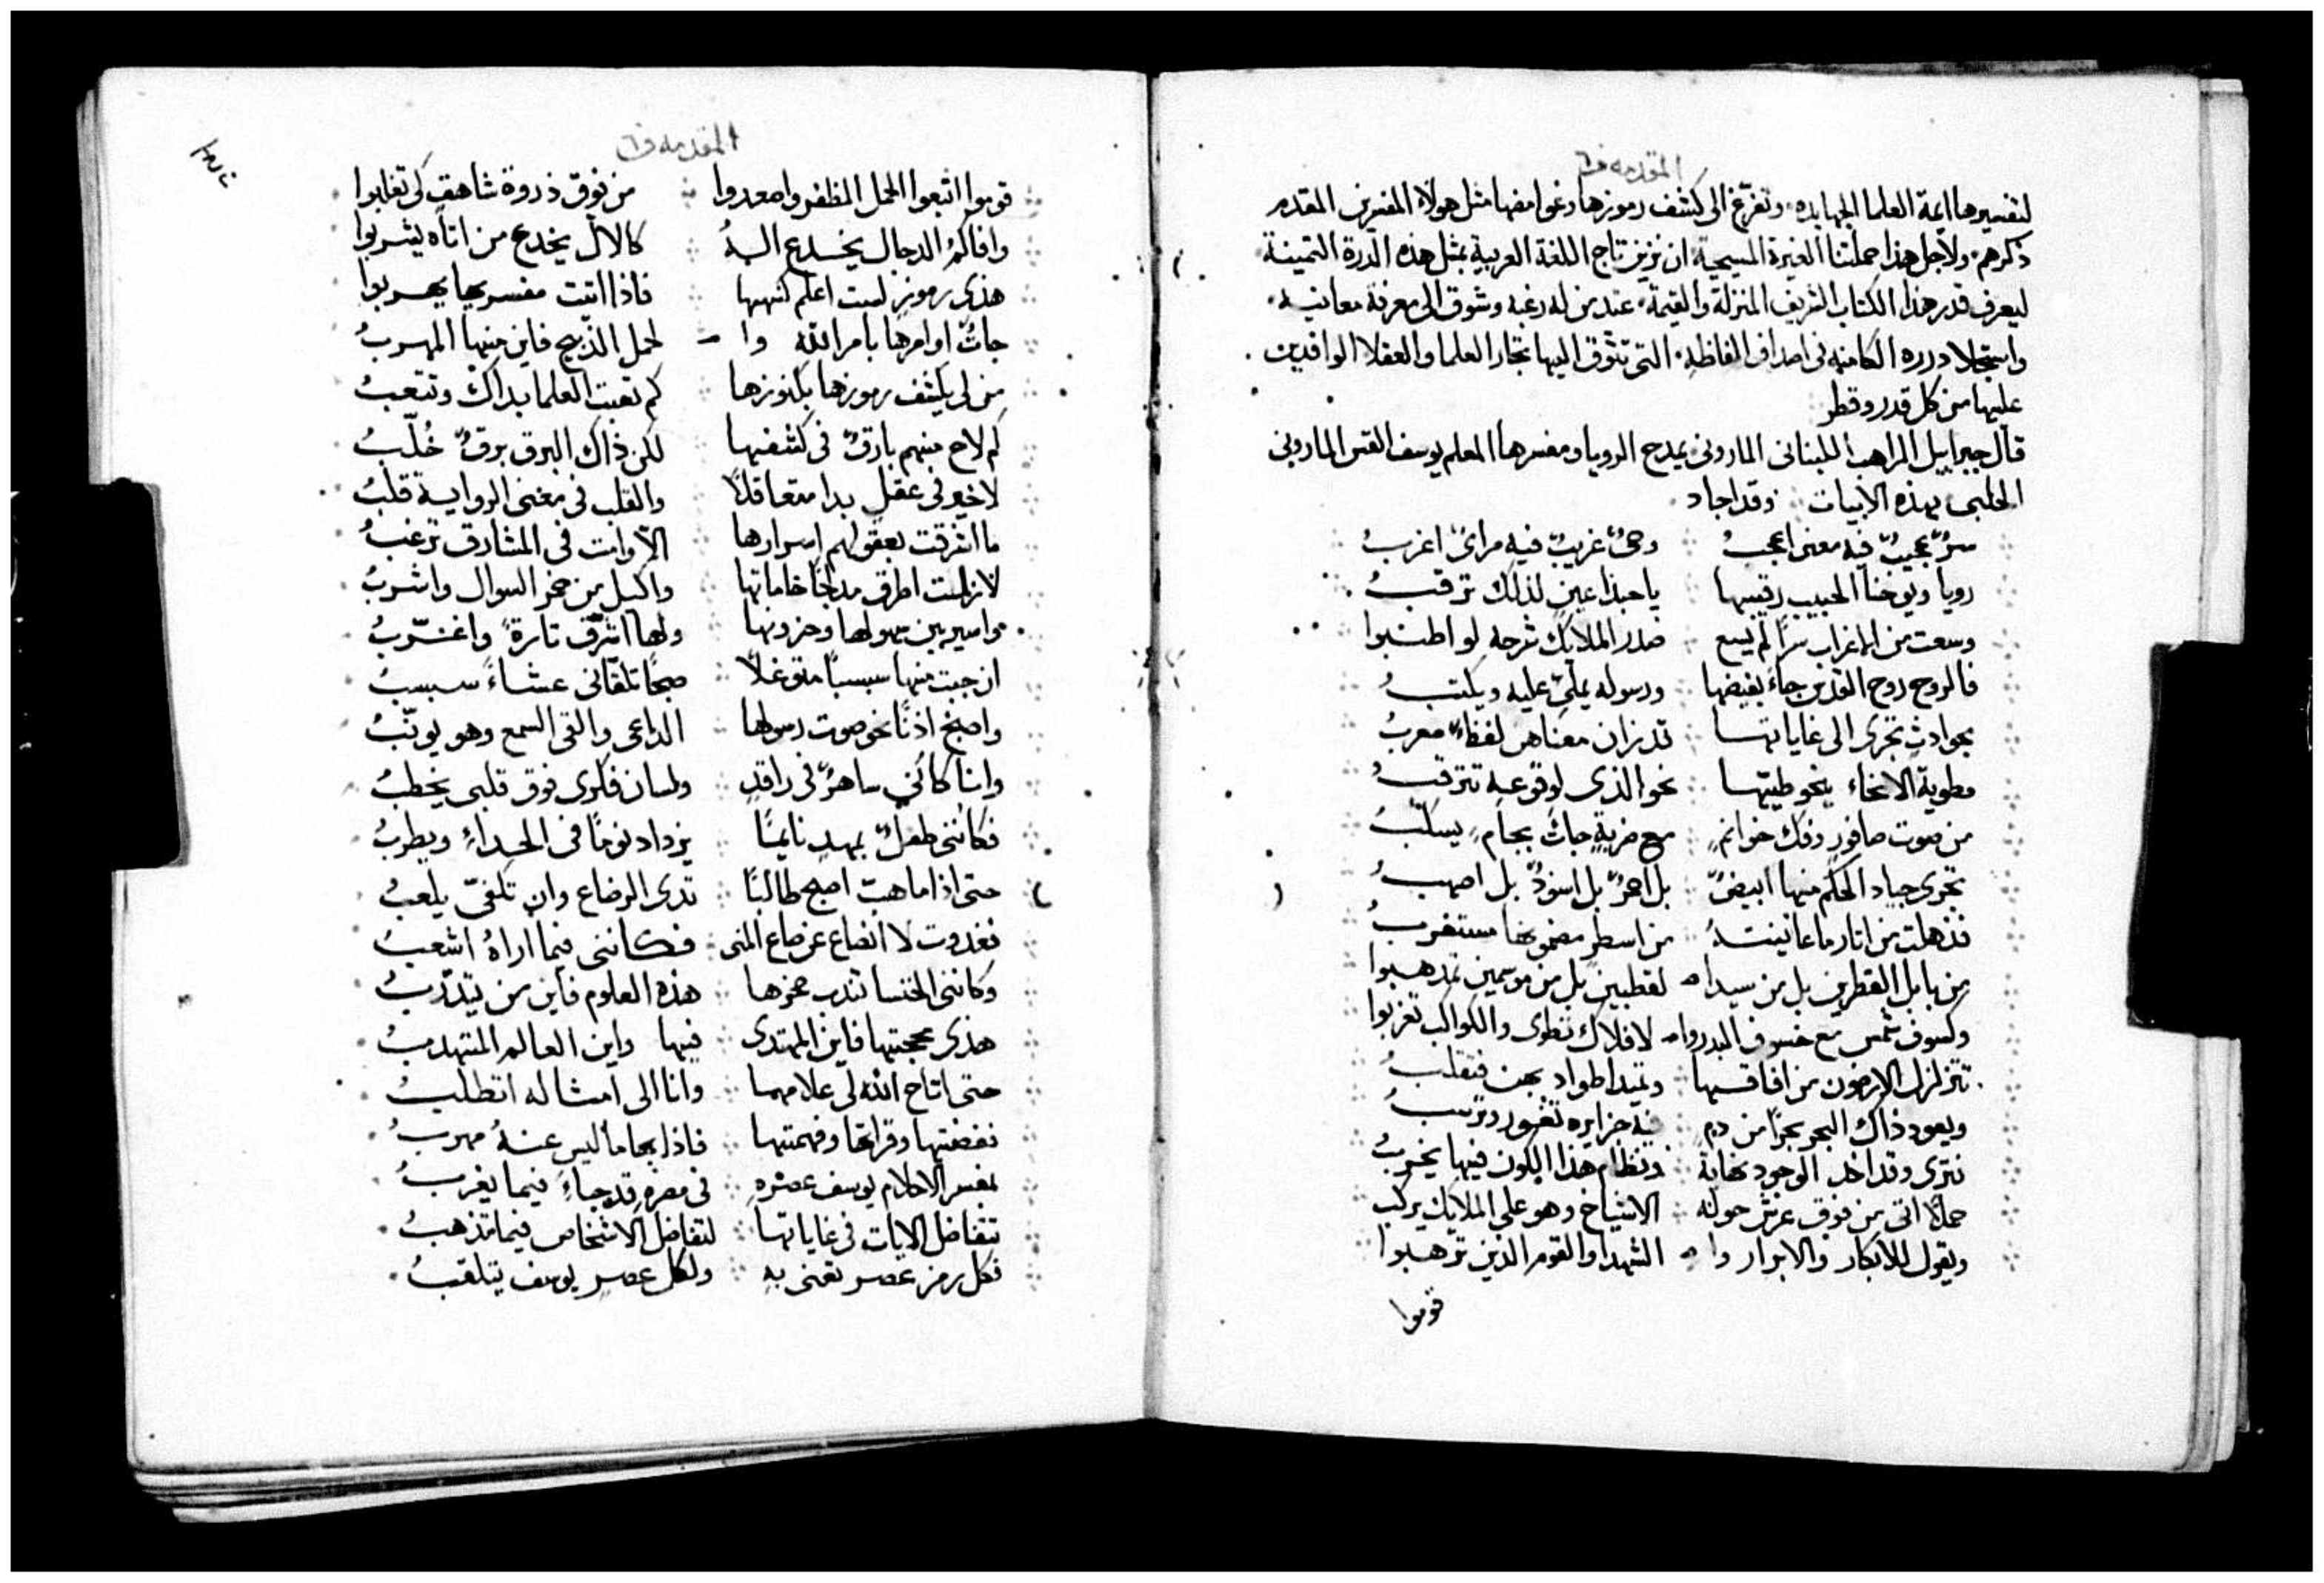 المقدمه ف٦
لتفسيرها ايمة العلما الجهابده، وتفرّغ الى كشف رموزها وغوامضها مثل هولاء المفسرين المقدم
ذكرهم، ولاجل هذا حملتنا الغيرة المسيحية، ان نزين تاج اللغة العربية بمثل هذه الدرة الثمينة
ليعرف قدر هذا الكتاب الشريف المنزلة والقيمة، عند من له رغبه وشوق الى معرفة معانيه،
واستجلا درره الكامنه فى اصداف الفاظهِ، التى تتوق اليها تجار العلما والعقلا الوافدين
عليها من كل قدر وقطر
قال جبراييل الراهب اللبنانى المارونى يمدح الرويا ومفسرها المعلم يوسف القس المارونى
الحلبى بهذه الابيات وقد اجاد
سرٌّ عجيبٌ فيه معنى اعجبُ وحىٌ غريبٌ فيه مراىً اغربُ
رويا ويوحنا الحبيب رقيبها يا حبذا عين لذلك ترقبُ
وسعت من الاغراب سرًا لم يسع صدر الملايك شرحه لو اطنبوا
فالروح روح القدس جاءَ بفيضها ورسوله يملى عليه ويكتبُ
بحوادثٍ تجرى الى غاياتها قد زان معناهن لفظاً معربُ
مطوية الانحاء ينحو طيّها نحو الذى لوقوعه تترقبُ
من صوت صافورٍ وفك خواتمٍ مع ضربةٍ جاتْ بجامٍ يسكبُ
تجرى جياد الحكم منها ابيضٌ بل احمرٌ بل اسودٌ بل اصهبُ
فذهلت من اثار ما عاينتهُ من اسطرٍ مضمونها مستغربُ
من بابل القطرين بل من سيدا لقطبين بل من موسمين تمذهبوا
وكسوف شمس مع خسوف البدر وا لافلاك تطوى والكواكب تغربوا
تتزلزل الارضون من افاقها وتميد اطواد بهن فتقلبُ
ويعود ذاك البحر بحرًا من دمٍ فيه جزايره تغور وترسبُ
فترى وتداخل الوجود نهاية ونظام هذا الكون فيها يخربُ
حملًا اتى من فوق عرشٍ حوله الاشياخ وهو على الملايك يركب
ويقول للابكار والابرار وا الشهدا والقوم الذين ترهبوا
قوموا
المقدمه ف٦
قوموا اتبعوا الحمل المظفر واصعدوا من فوق ذروة شاهقٍ كى تغلبوا
وافاكمُ الدجال يخدع الهُ كالال يخدع من اتاه يشربوا
هذى رموز لست اعلم كنهها فاذا اتيت مفسريها يهربوا
جاتْ اوامرها بامر الله وا لحمل الذبيح فاين منها المهربُ
من لى بكشف رموزها بكنوزها كم تعبت العلما بذاك وتتعبُ
كم لاح منهم بارقٌ فى كشفها لكن ذاك البرق برقٌ خُلّبُ
لا خير فى عقلٍ بدا متعاقلًا والقلب فى معنى الرواية قلّبُ
ما اشرقت بعقولهم اسرارها الّا وامت فى المشارق تغربُ
لا زلت اطرق مدلجًا خاماتها واكيل من خمر السوال واشربُ
واسير بين سهولها وحزونها ولها اشرّق تارةً واغرّبُ
ان جبت منها سبسبًا متوغلًا صبحًا تلقانى عشاءً سبسبُ
واصيخ اذنًا نحو صوت رسولها الداعى والقى السمع وهو يونّبُ
وانا كانى ساهرٌ فى راقدٍ ولسان فكرى فوق قلبى يخطبُ
فكاننى طفلٌ بمهدٍ نايمًا يزداد نومًا فى الحداءِ ويطربُ
حتى اذا ما هبّ اصبح طالبًا ثدى الرضاع وان تكفّى يلعبُ
فغدوت لا انصاع عن صاع المنى فكاننى فيما اراهُ اشعبُ
وكاننى الخنسا تندب صخرها هذه العلوم فاين من يتدرّبُ
هذى محجتها فاين المهتدى فيها واين العالم المتهذبُ
حتى اتاح الله لى علامها وانا الى امثاله اتطلبُ
ففضضتها وقراتها وفهمتها فاذا بها ما ليس عنهُ مهربُ
لمفسر الاحلام يوسف عصره فى مصره قد جاءَ فيما يغربُ
تتفاضل الايات فى غاياتها لتفاضل الاشخاص فيما تذهبُ
فكل رمز عصر تعنى بهِ ولكل عصرٍ يوسف يتلقبُ